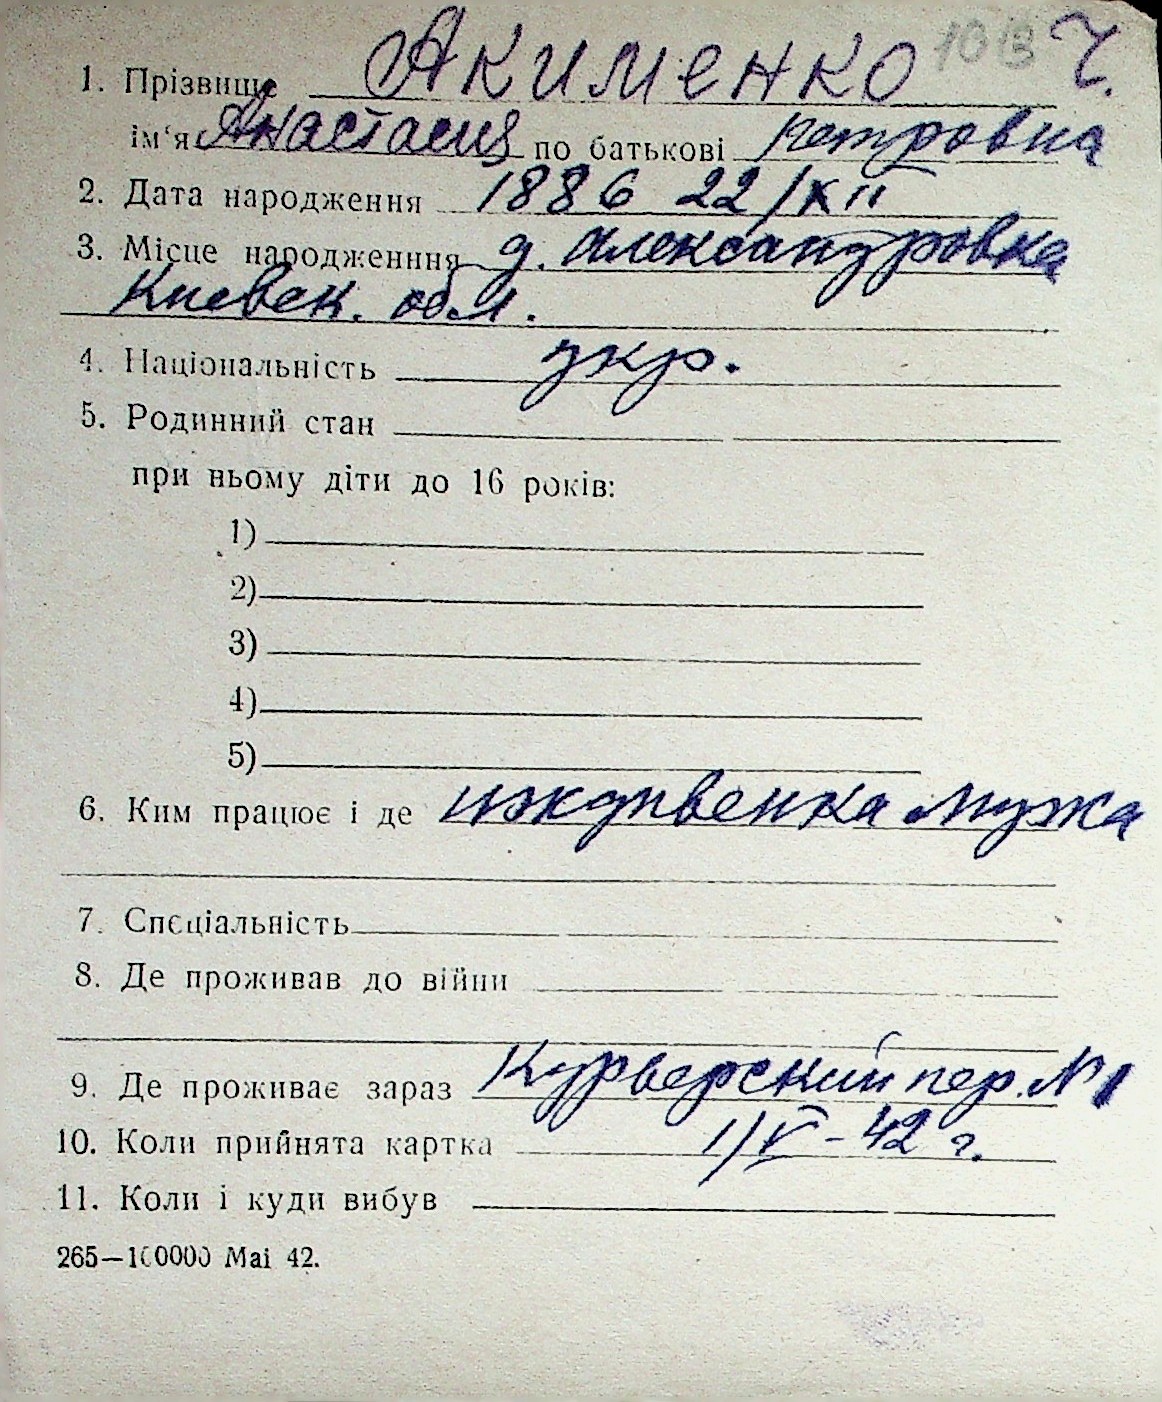 10 13 Ч.
1. Прізвище Акименко
ім'я Анастасия по батькові Петровна
2. Дата народження 1886 22/XII
3. Місце народженння д. Александровка
Киевск. обл.
4. Національність укр.
5. Родинний стан
при ньому діти до 16 років:
1)
2)
3)
4)
5)
6. Ким працює і де иждивенка мужа
7. Спєціальність
8. Де проживав до війни
9. Де проживає зараз Курьерский пер. № 1
10. Коли прийнята картка 1/V-42 г.
11. Коли і куди вибув
265—100000 Mai 42.